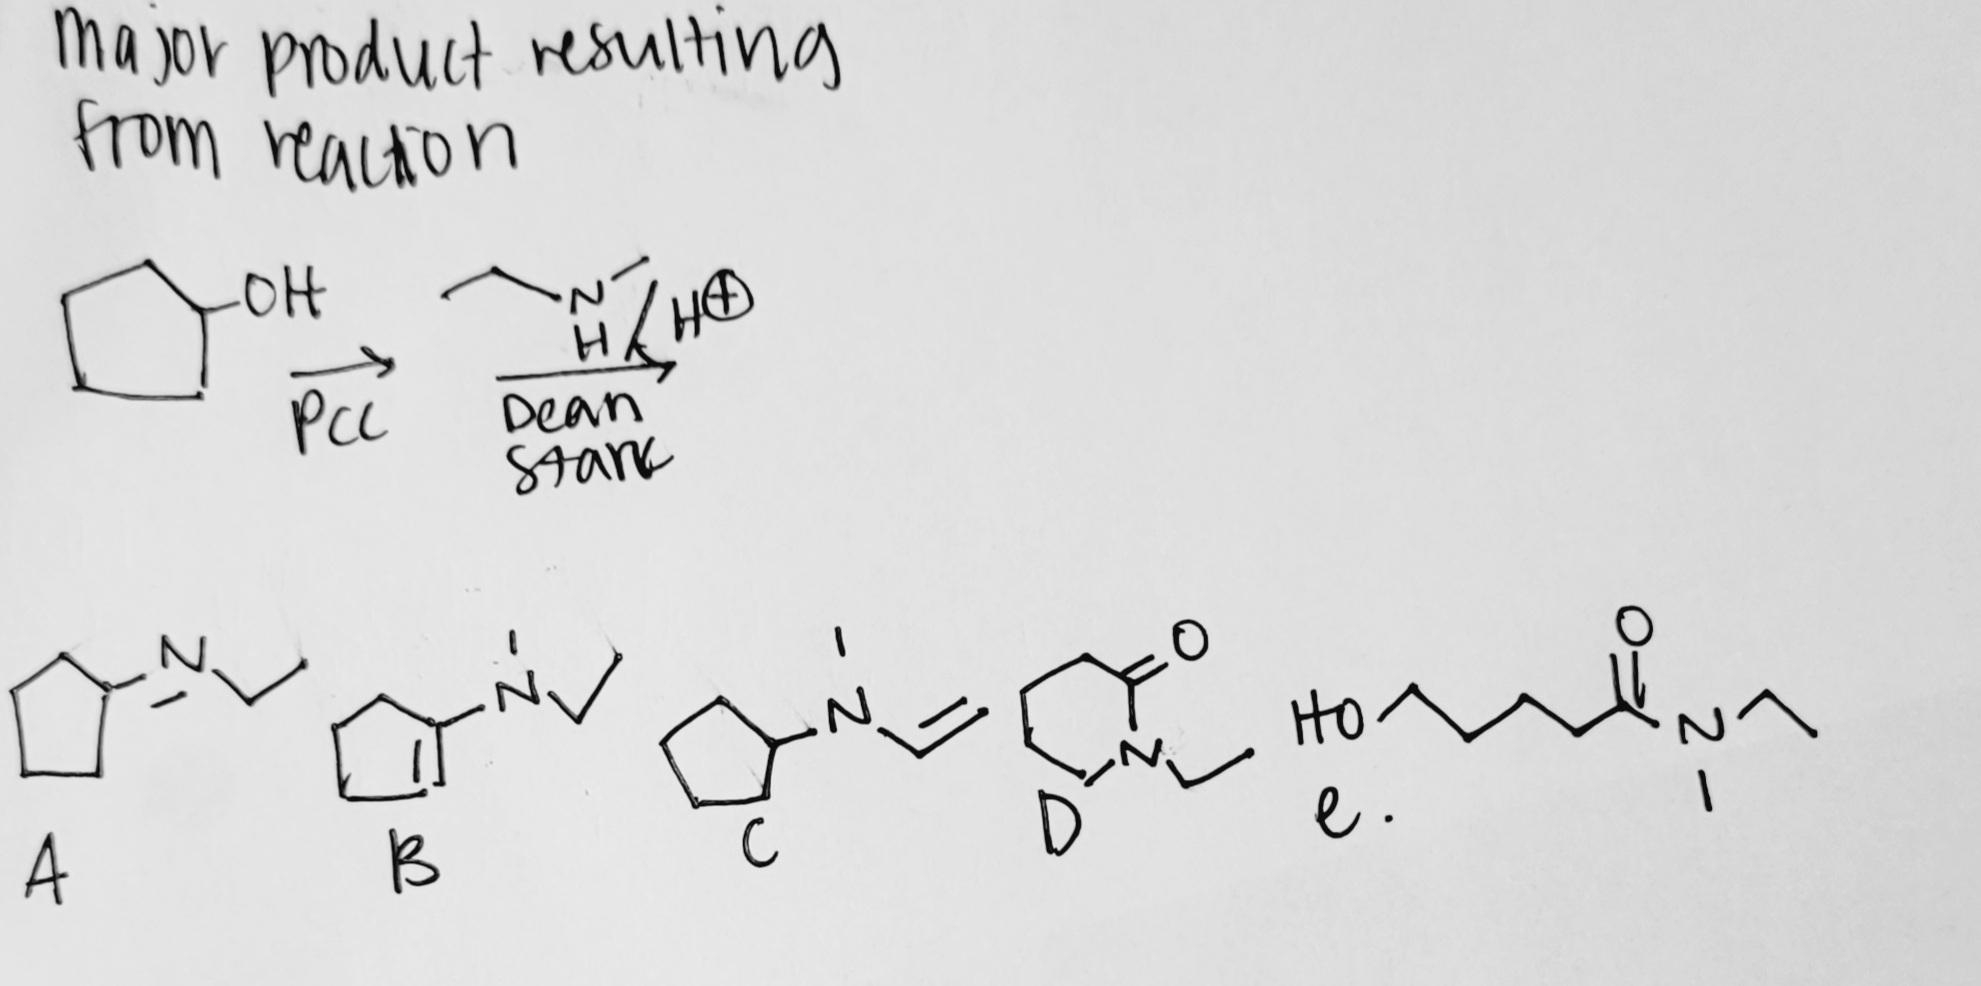 major product resulting
from reaction
OH
PCC
N
H
H⊕
Dean
Stark
N
N
N
O
N
HO
O
N
A
B
C
D
e.